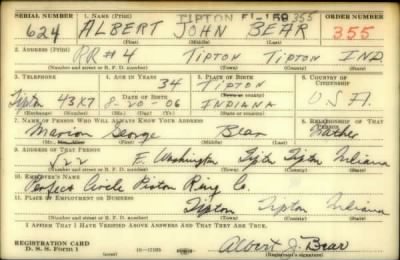 SERIAL NUMBER 1. NAME (Print) TIPTON FI-159 355 ORDER NUMBER
624 ALBERT JOHN BEAR 355
(First) (Middle) (Last)
2. ADDRESS (Print)
RR #4 TIPTON TIPTON IND.
(Number and street or R. F. D. number) (Town) (County) (State)
3. TELEPHONE 4. AGE IN YEARS 5. PLACE OF BIRTH 6. COUNTRY OF CITIZENSHIP
34 TIPTON
Tipton 43K7 DATE OF BIRTH (Town or county)
8-20-06 INDIANA U.S.A.
(Exchange) (Number) (Mo.) (Day) (Yr.) (State or country)
7. NAME OF PERSON WHO WILL ALWAYS KNOW YOUR ADDRESS 8. RELATIONSHIP OF THAT PERSON
Marion George Bear Father
(First) (Middle) (Last)
9. ADDRESS OF THAT PERSON
522 E. Washington Tipton Tipton Indiana
(Number and street or R. F. D. number) (Town) (County) (State)
10. EMPLOYER'S NAME
Perfect Circle Piston Ring Co.
11. PLACE OF EMPLOYMENT OR BUSINESS
Tipton Tipton Indiana
(Number and street or R. F. D. number) (Town) (County) (State)
I AFFIRM THAT I HAVE VERIFIED ABOVE ANSWERS AND THAT THEY ARE TRUE.
REGISTRATION CARD
D. S. S. Form 1 16—17105 Albert J. Bear
(Registrant's signature)